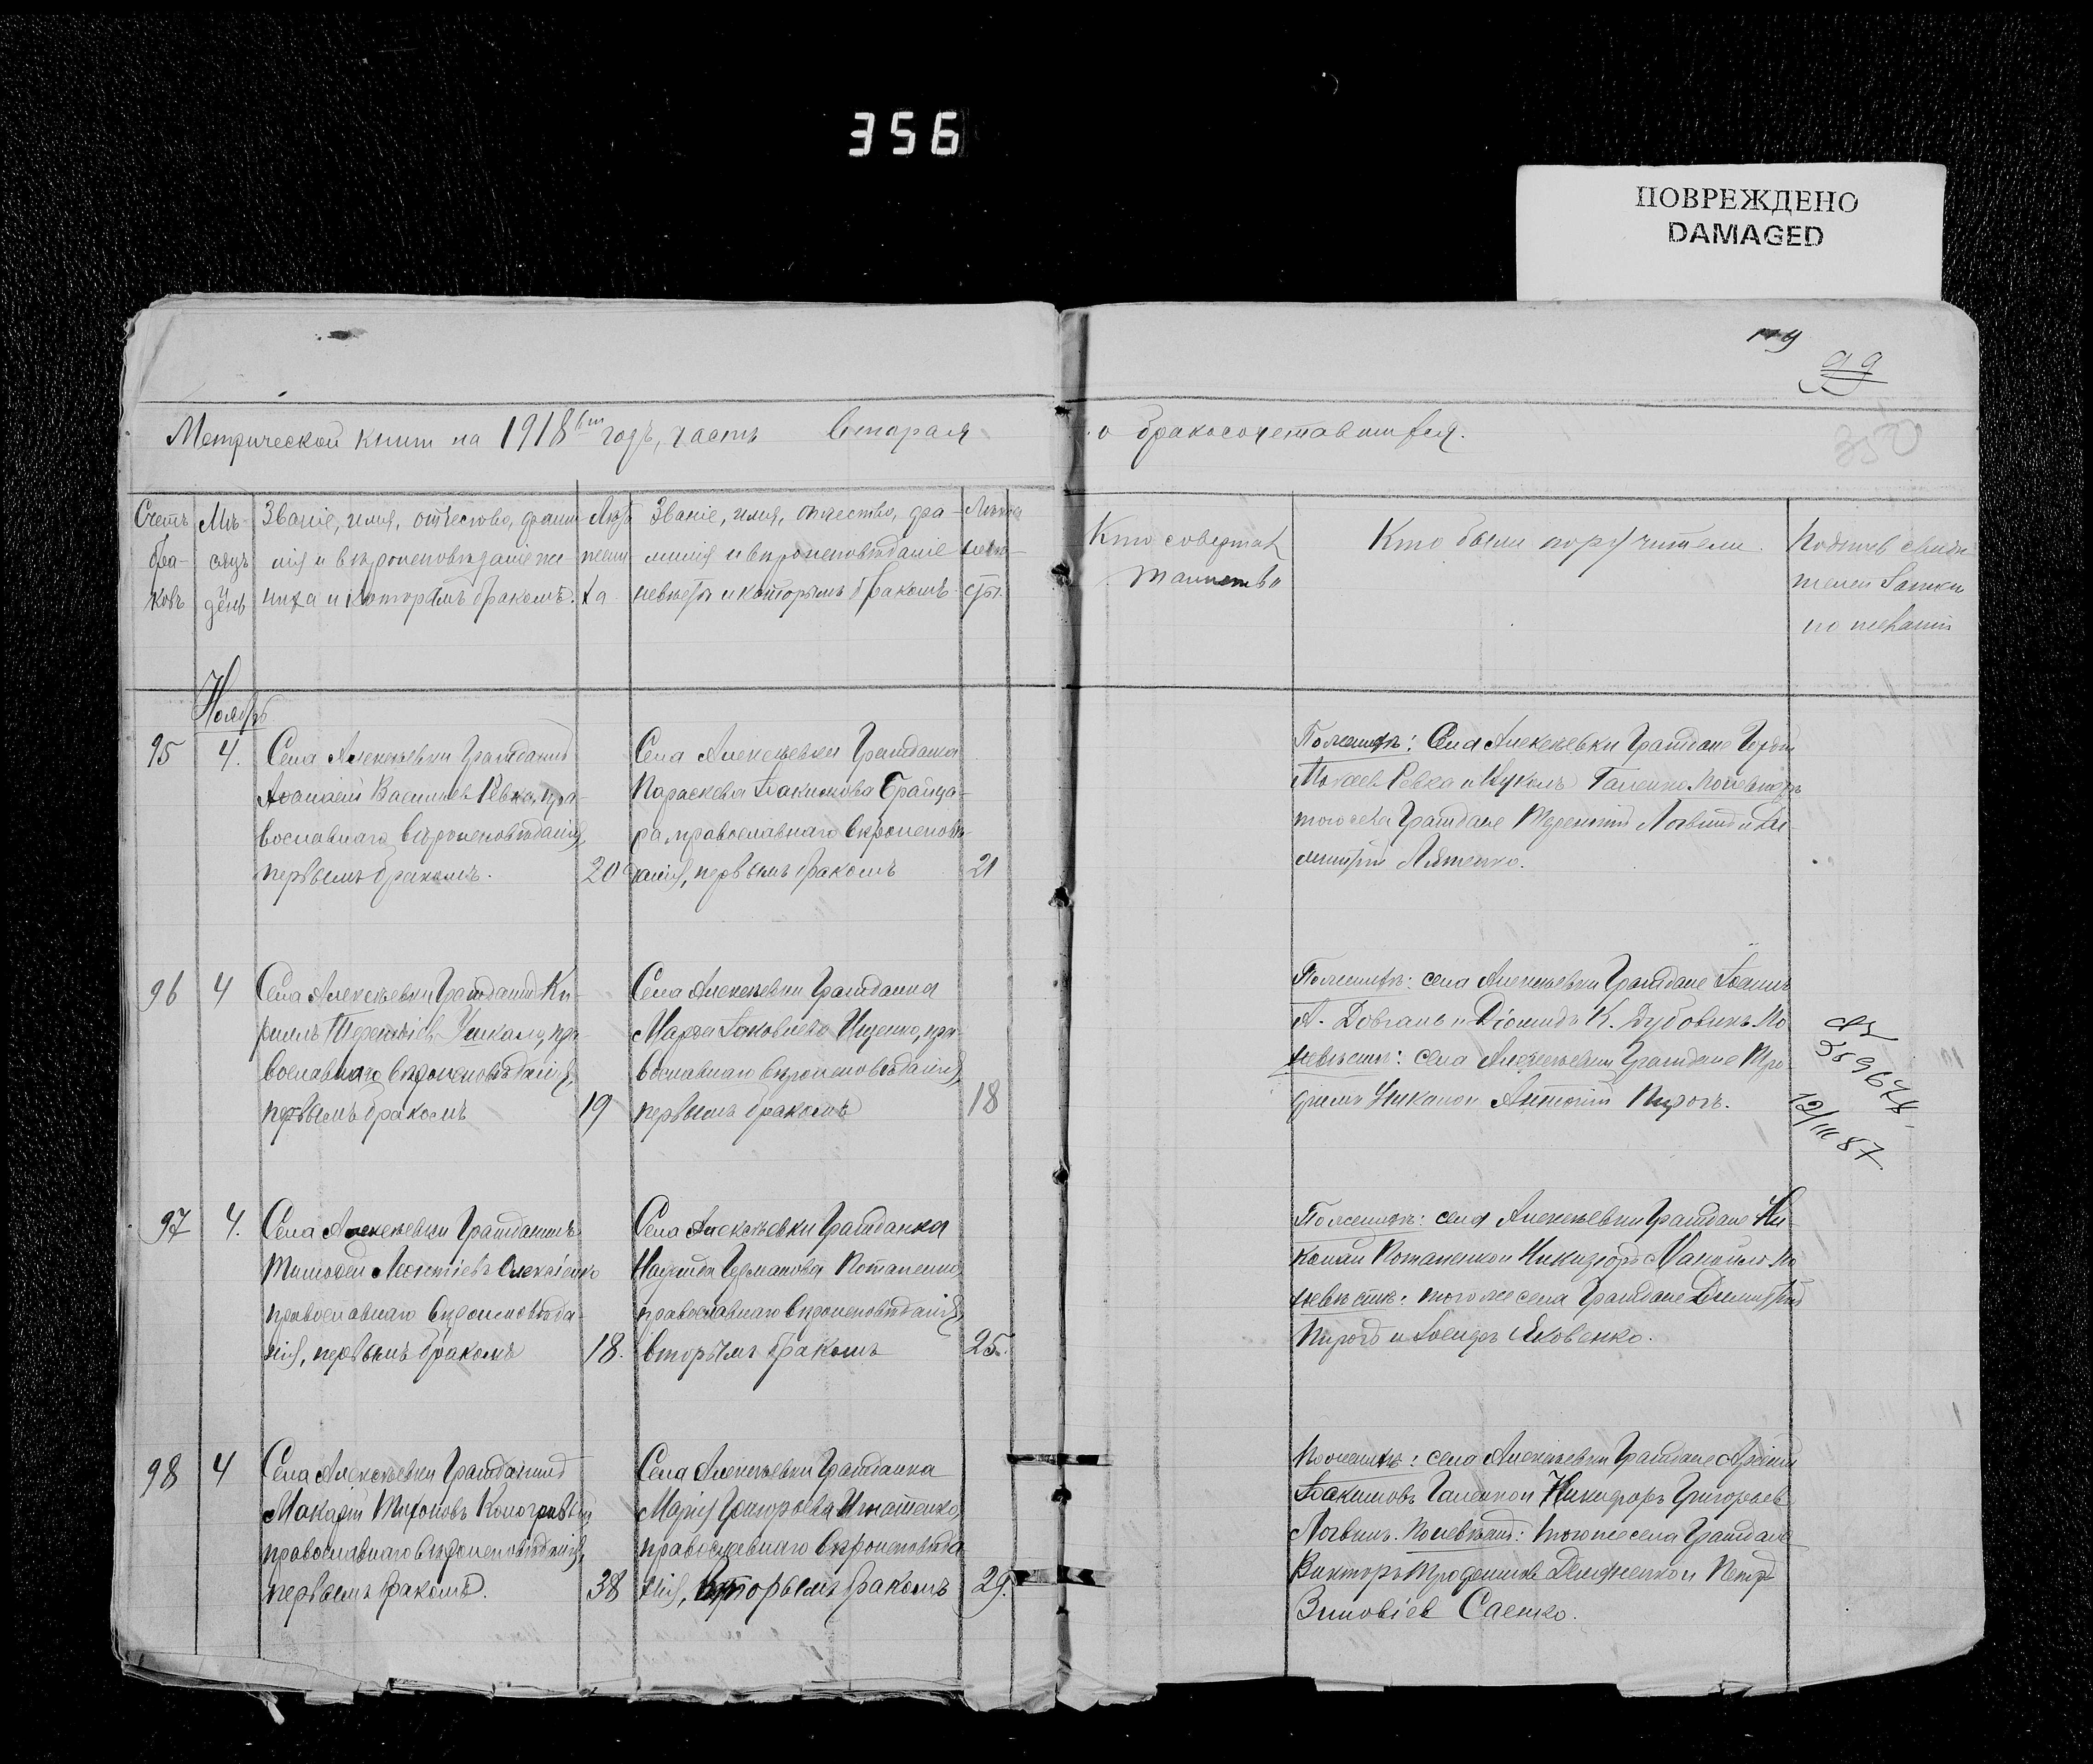 356
ПОВРЕЖДЕНО
DAMAGED
99
350
Метрической книги на 1918 годъ, часть вторая
о бракосочетавшихся.
Счетъ бра-ковъ
Мѣ-сяцъ и день
Званіе, имя, отчество, фами-
лія и вѣроисповѣданіе же-
ниха и которымъ бракомъ.
Лѣта жени-ха
Званіе, имя, отчество, фа-
милія и вѣроисповѣданіе
невѣсты и которымъ бракомъ
Лѣта невѣ-сты.
Кто совершалъ
таинство
Кто были поручители.
Подпись свидѣ-
телей записи
по желанію
Ноябрь
95
4.
Села Алексѣевки Гражданинъ
Аѳанасій Васильевъ Ревка, пра-
вославнаго вѣроисповѣданія,
первымъ бракомъ.
20
Села Алексѣевки Гражданка
Параскева Іоакимова
православнаго вѣроисповѣ-
данія, первымъ бракомъ
21
По женихѣ: Села Алексѣевки Граждане
Ревка и Галенко. По невѣстѣ:
того села Граждане Терентій Логвинъ и Ди-
митрій
96
4
Села Алексѣевки Гражданинъ Ки-
риллъ Терентіевъ Ушкало, пра-
вославнаго вѣроисповѣданія,
первымъ бракомъ
19
Села Алексѣевки Гражданка
Марфа Іаковлева Ищенко, пра-
вославнаго вѣроисповѣданія,
первымъ бракомъ
18
По женихѣ: села Алексѣевки Граждане Іоаннъ
А. Довгань и Діомидъ К. Дубовикъ. По
невѣстѣ: села Алексѣевки Граждане Тро-
фимъ и Антоній Пирогъ.
12/III 87
97
4.
Села Алексѣевки Гражданинъ
Тимофей Леонтіевъ Олексіенко
православнаго вѣроисповѣда-
нія, первымъ бракомъ
18.
Села Алексѣевки Гражданка
Надежда Германова Потапенко,
православнаго вѣроисповѣданія,
вторымъ бракомъ
25.
По женихѣ: села Алексѣевки Граждане Ни-
колай Потапенко и Никифоръ Манойло. По
невѣстѣ: того же села Граждане Димитрій
Пирогъ и Іосифъ Яковенко.
98
4
Села Алексѣевки Гражданинъ
Макарій Тихоновъ Кологривый,
православнаго вѣроисповѣданія,
первымъ бракомъ.
38
Села Алексѣевки Гражданка
Марія Григорьева Игнатенко,
православнаго вѣроисповѣда-
нія, вторымъ бракомъ
29.
По женихѣ: села Алексѣевки Граждане
Іоакимовъ Галенко и Никифоръ Григорьевъ
Логвинъ. По невѣстѣ: того же села Граждане
Викторъ Трофимовъ и Петръ
Зиновіевъ Саенко.